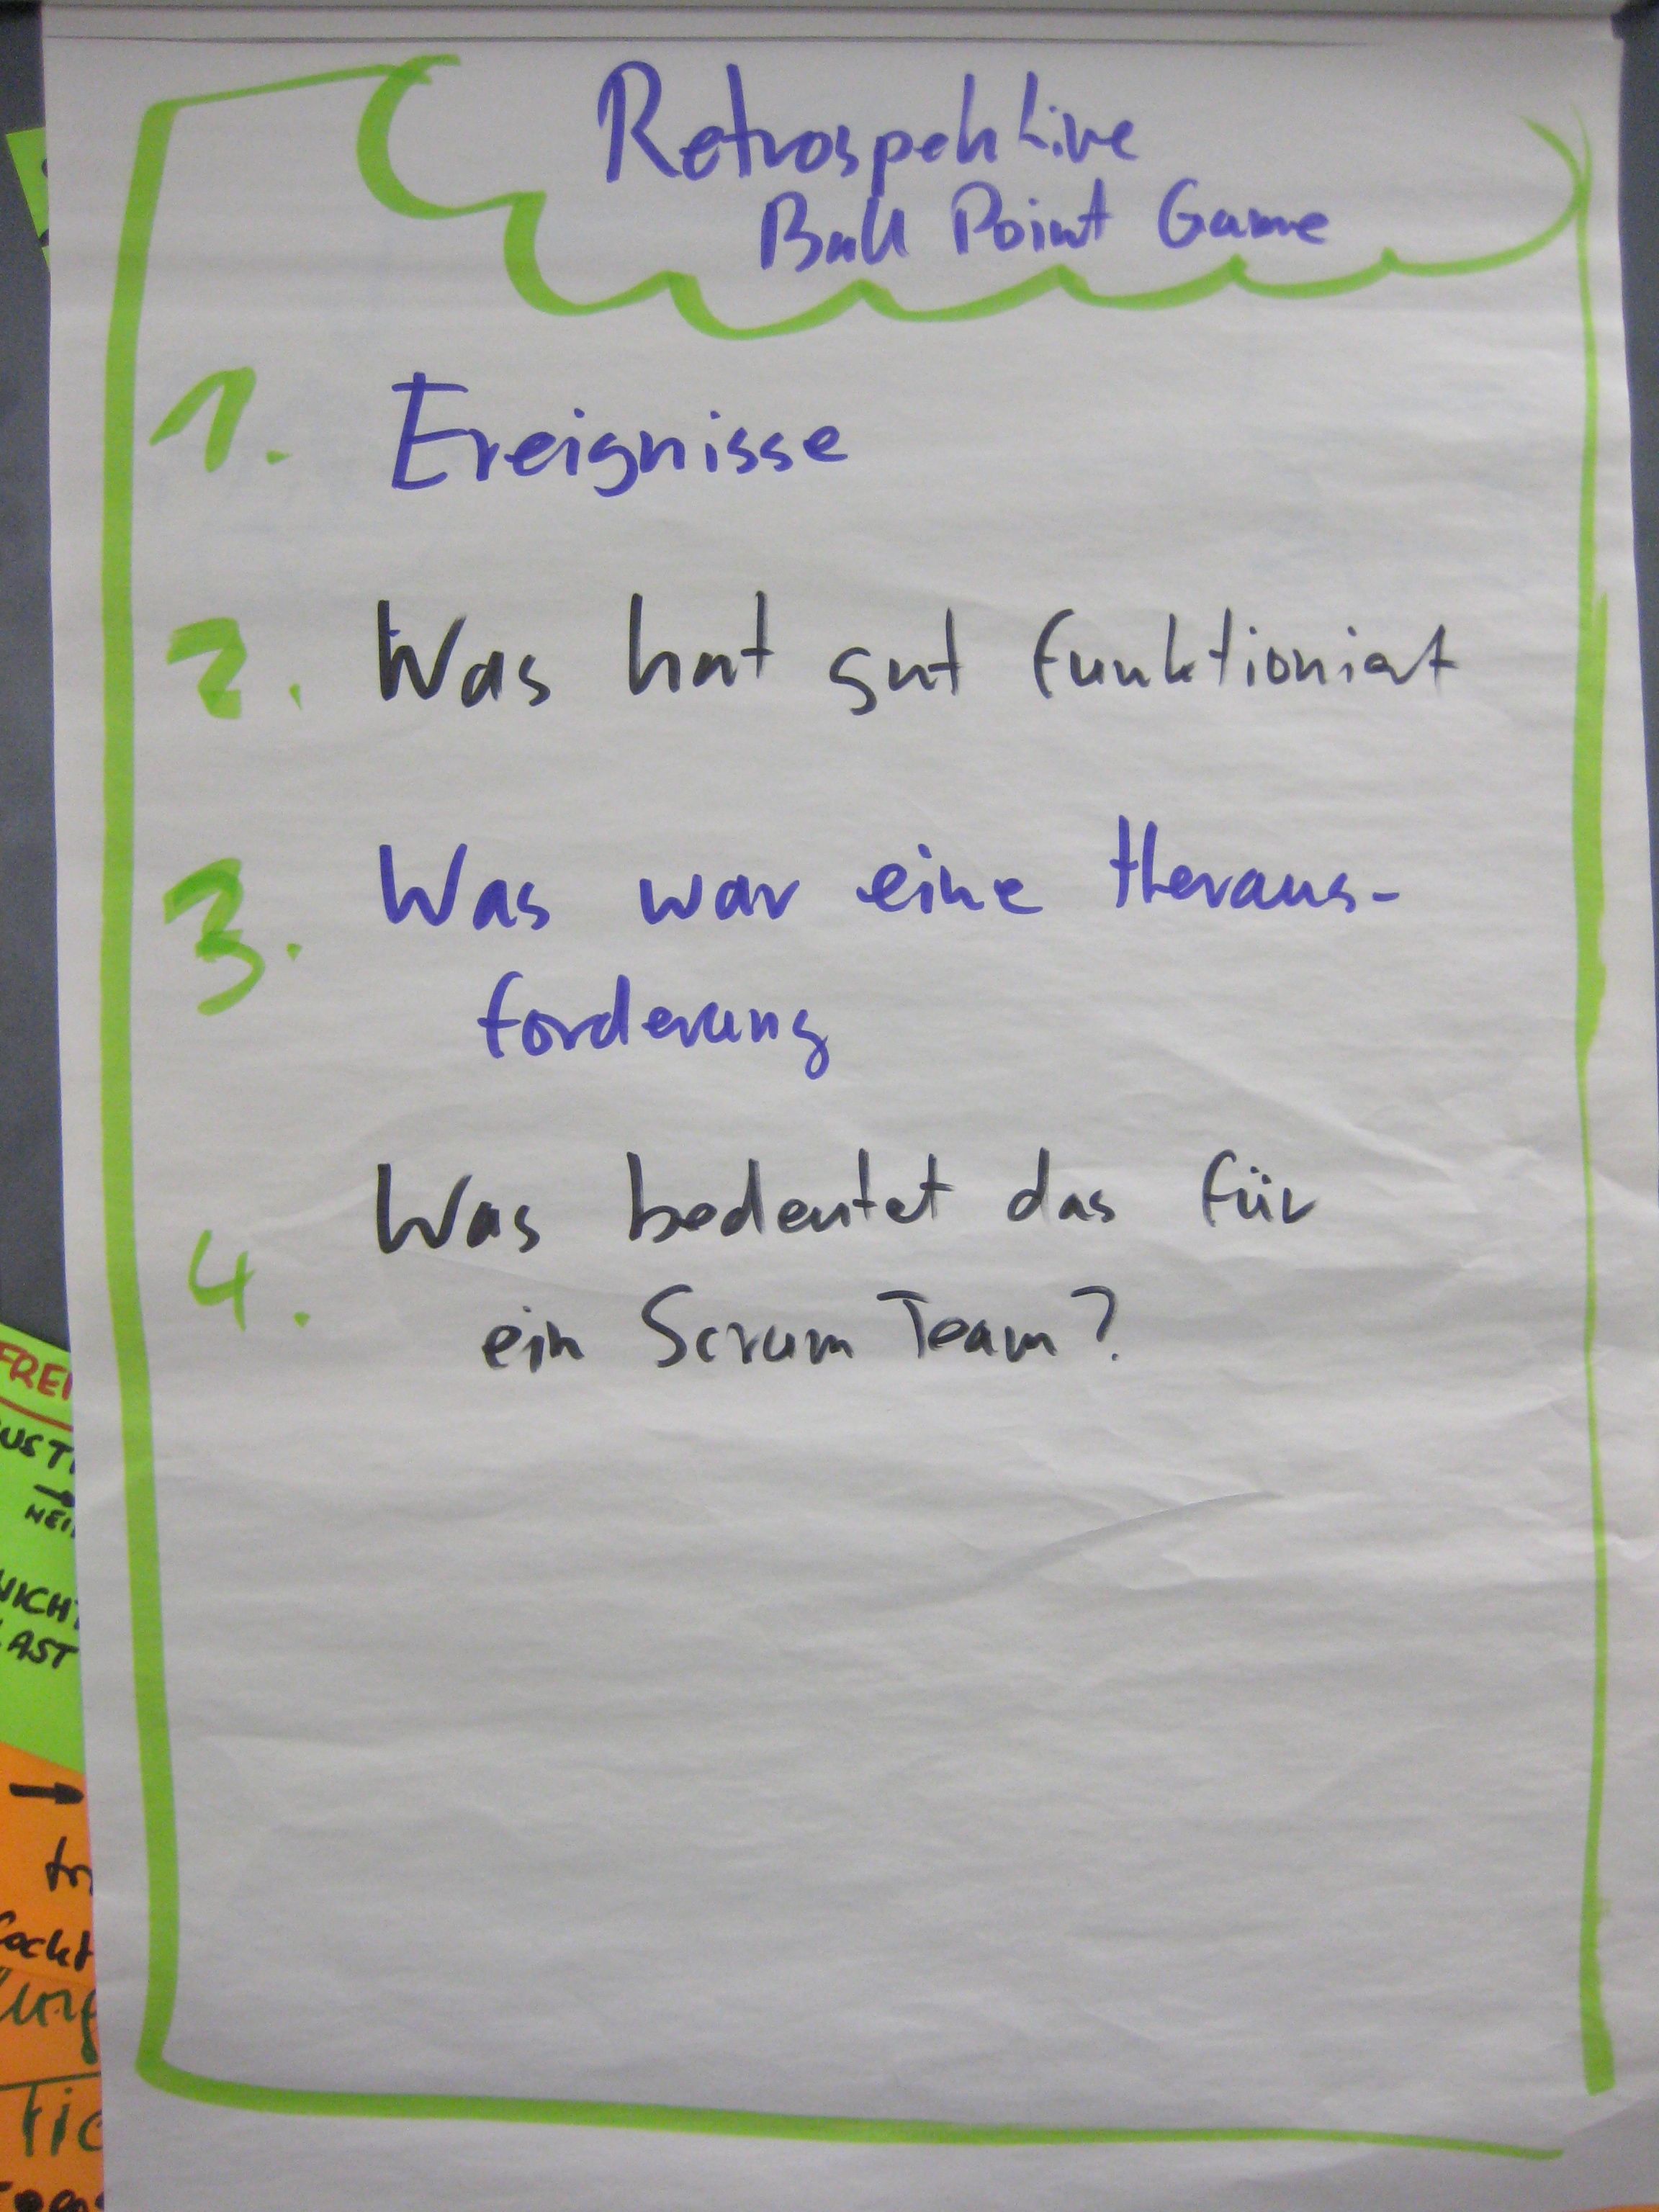 Retrospektive
Ball Point Game
1. Ereignisse
2. Was hat gut funktioniert
3. Was war eine Heraus-
forderung
4. Was bedeutet das für
ein Scrum Team?
FREI
UST
NEI
NICHT
LAST